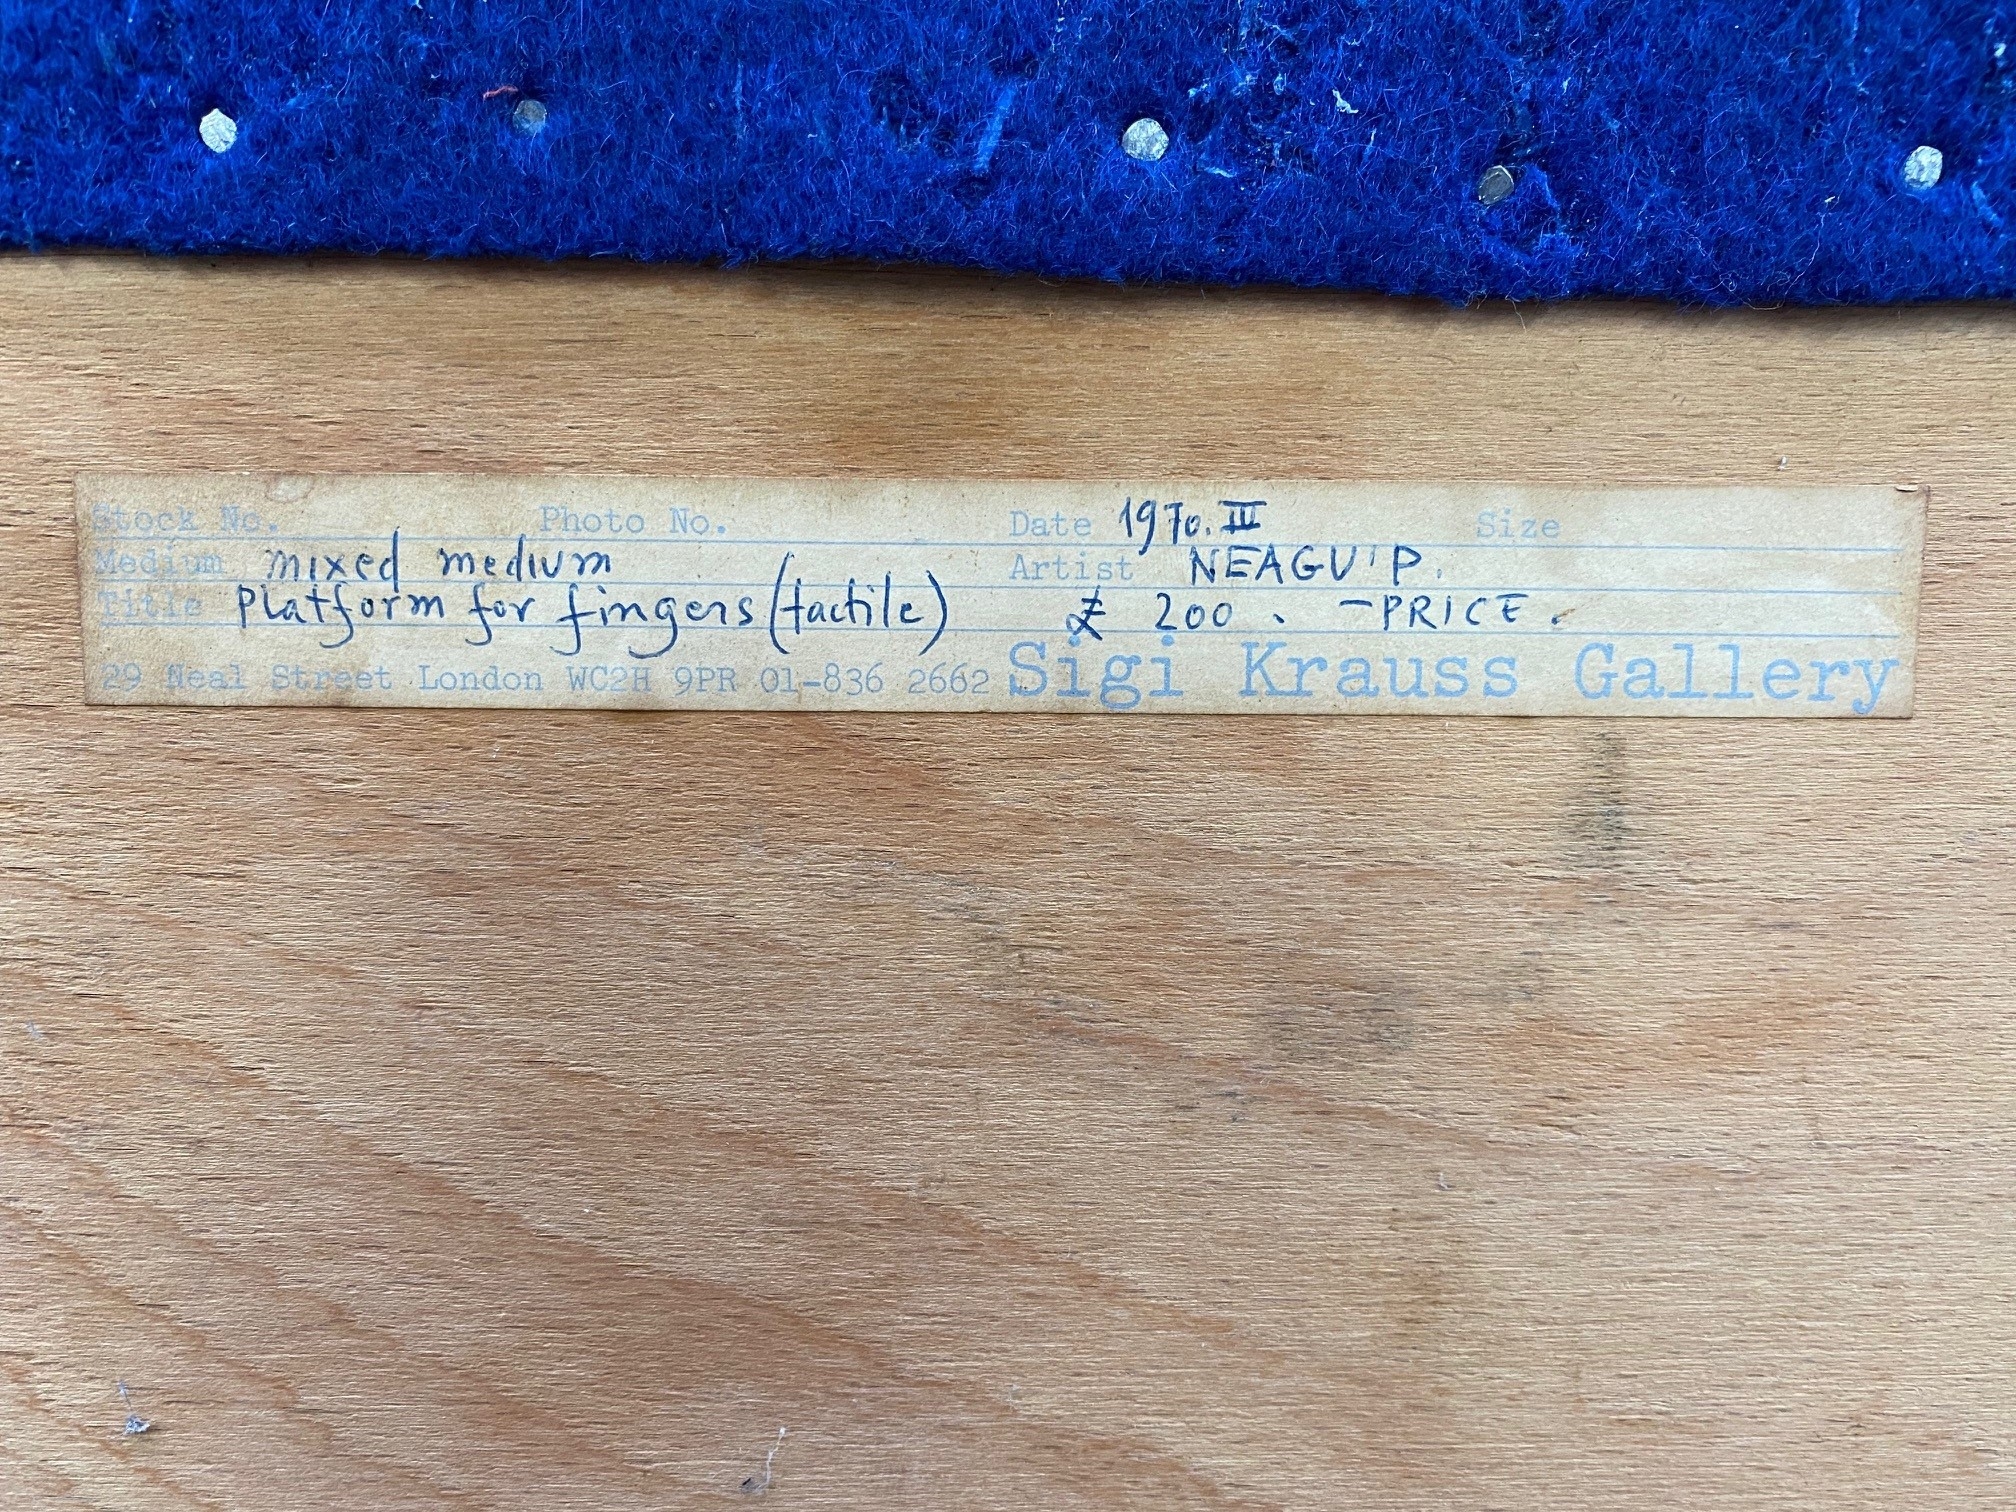 Stock No. Photo No. Date 1970.III Size
Medium mixed medium Artist NEAGU'P.
Title Platform for fingers (tactile) £ 200. -PRICE.
29 Neal Street London WC2H 9PR 01-836 2662 Sigi Krauss Gallery